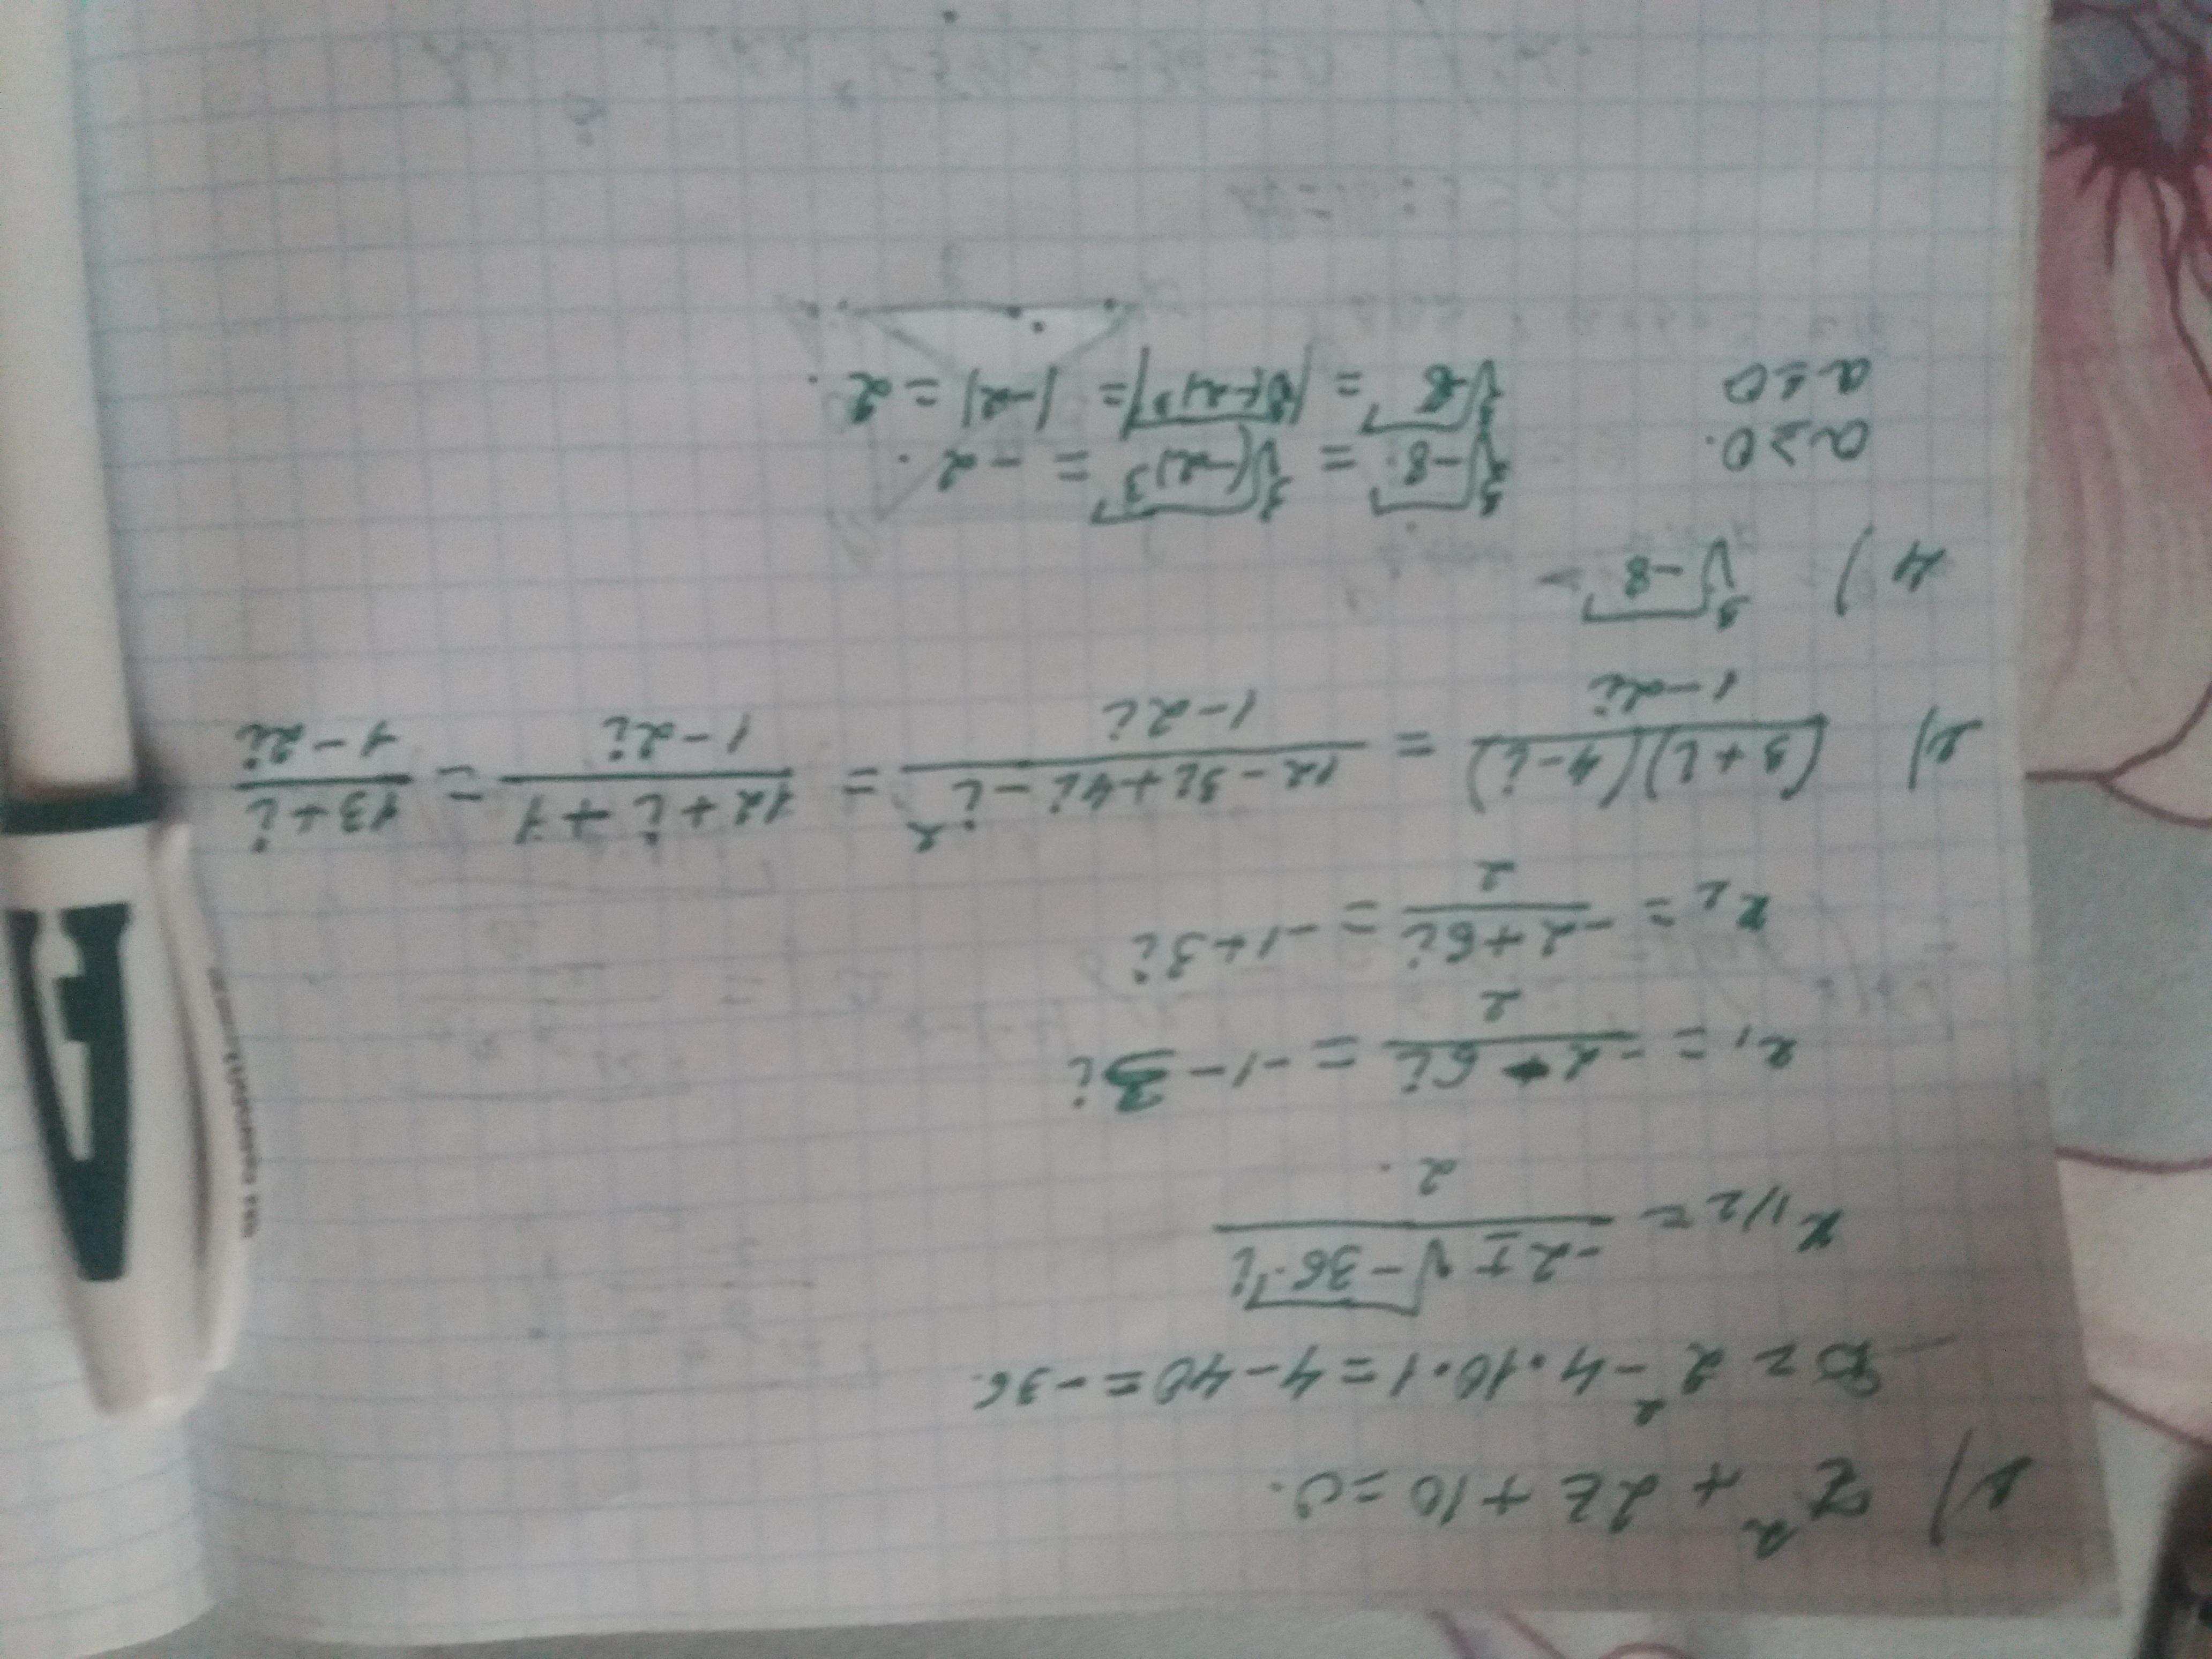 1) z² + 2z + 10 = 0.
D = 2² - 4·10·1 = 4 - 40 = -36.
x 1/2 = (-2 ± √(-36·i)) / 2.
x₁ = (-2 - 6i) / 2 = -1 - 3i
x₂ = (-2 + 6i) / 2 = -1 + 3i
2) (3+i)(4-i) / (1-2i) = (12 - 3i + 4i - i²) / (1-2i) = (12 + i + 1) / (1-2i) = (13 + i) / (1-2i)
4) ³√-8
a ≥ 0. ³√-8 = ³√(-2)³ = -2.
a ≤ 0 ³√-8 = |³√(-2)³| = |-2| = 2.